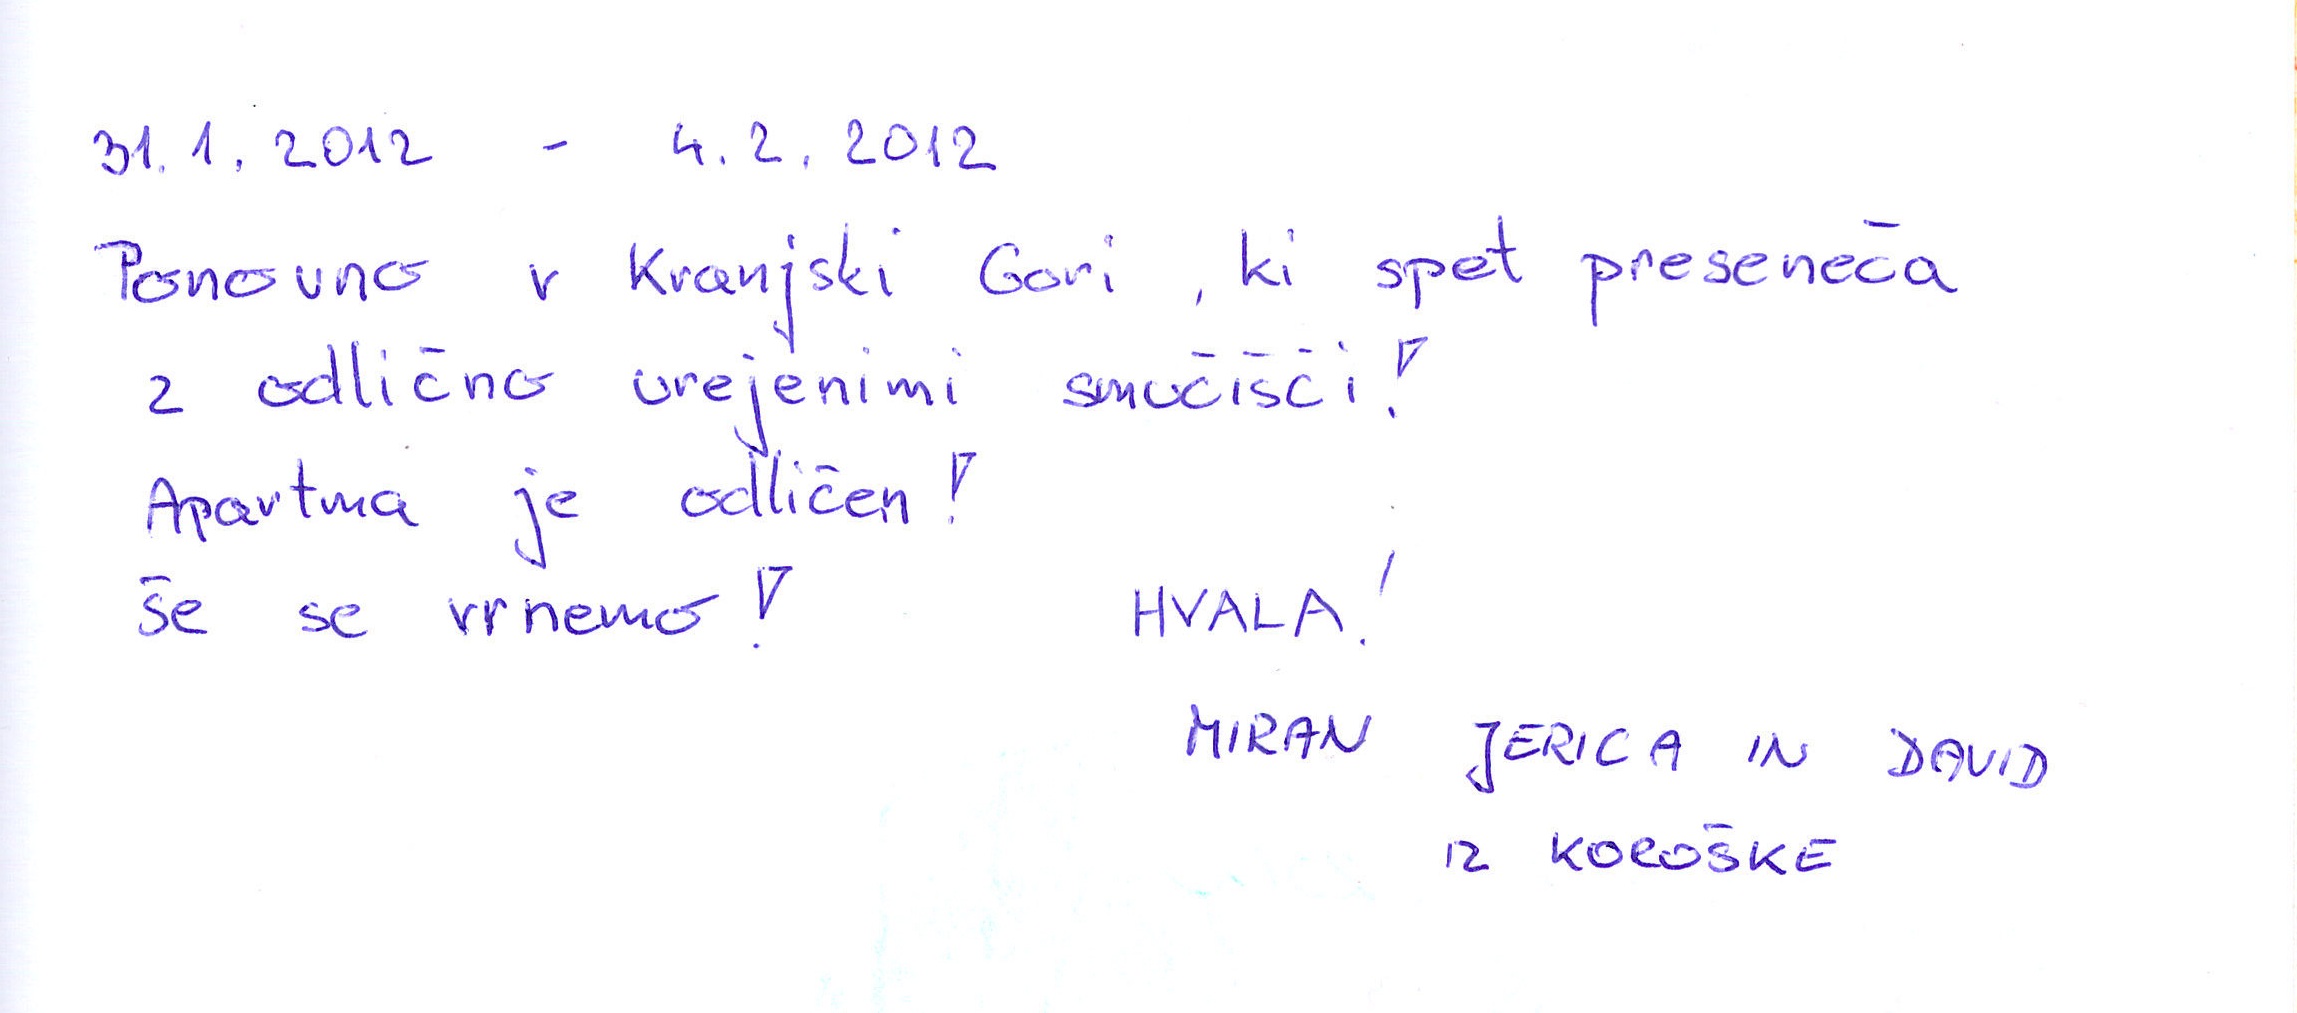 31.1.2012 - 4.2.2012
Ponovno v Kranjski Gori, ki spet preseneča
z odlično urejenimi smučišči!
Apartma je odličen!
Še se vrnemo! HVALA!
MIRAN JERICA IN DAVID
IZ KOROŠKE